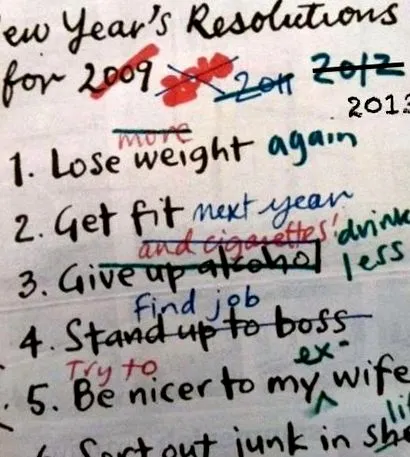 ew Year's Resolutions
for 2009 2011 2012
2013
more
1. Lose weight again
2. Get fit next year
and cigarettes! drink
3. Give up alcohol less
find job
4. Stand up to boss
Try to ex-
5. Be nicer to my wife
li
6. Sort out junk in she